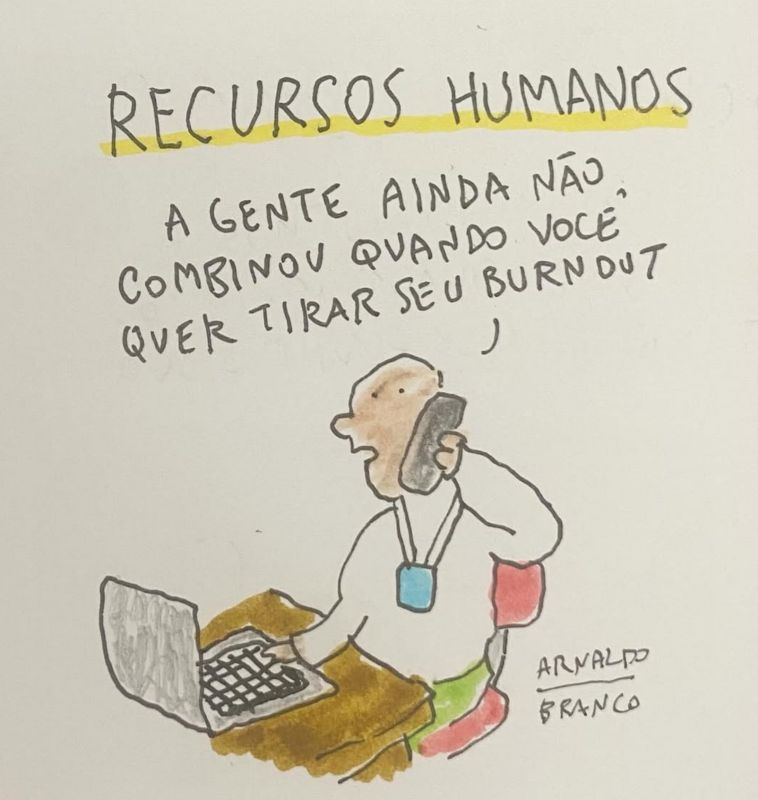 RECURSOS HUMANOS
A GENTE AINDA NÃO
COMBINOU QUANDO VOCÊ
QUER TIRAR SEU BURNOUT
ARNALDO
BRANCO